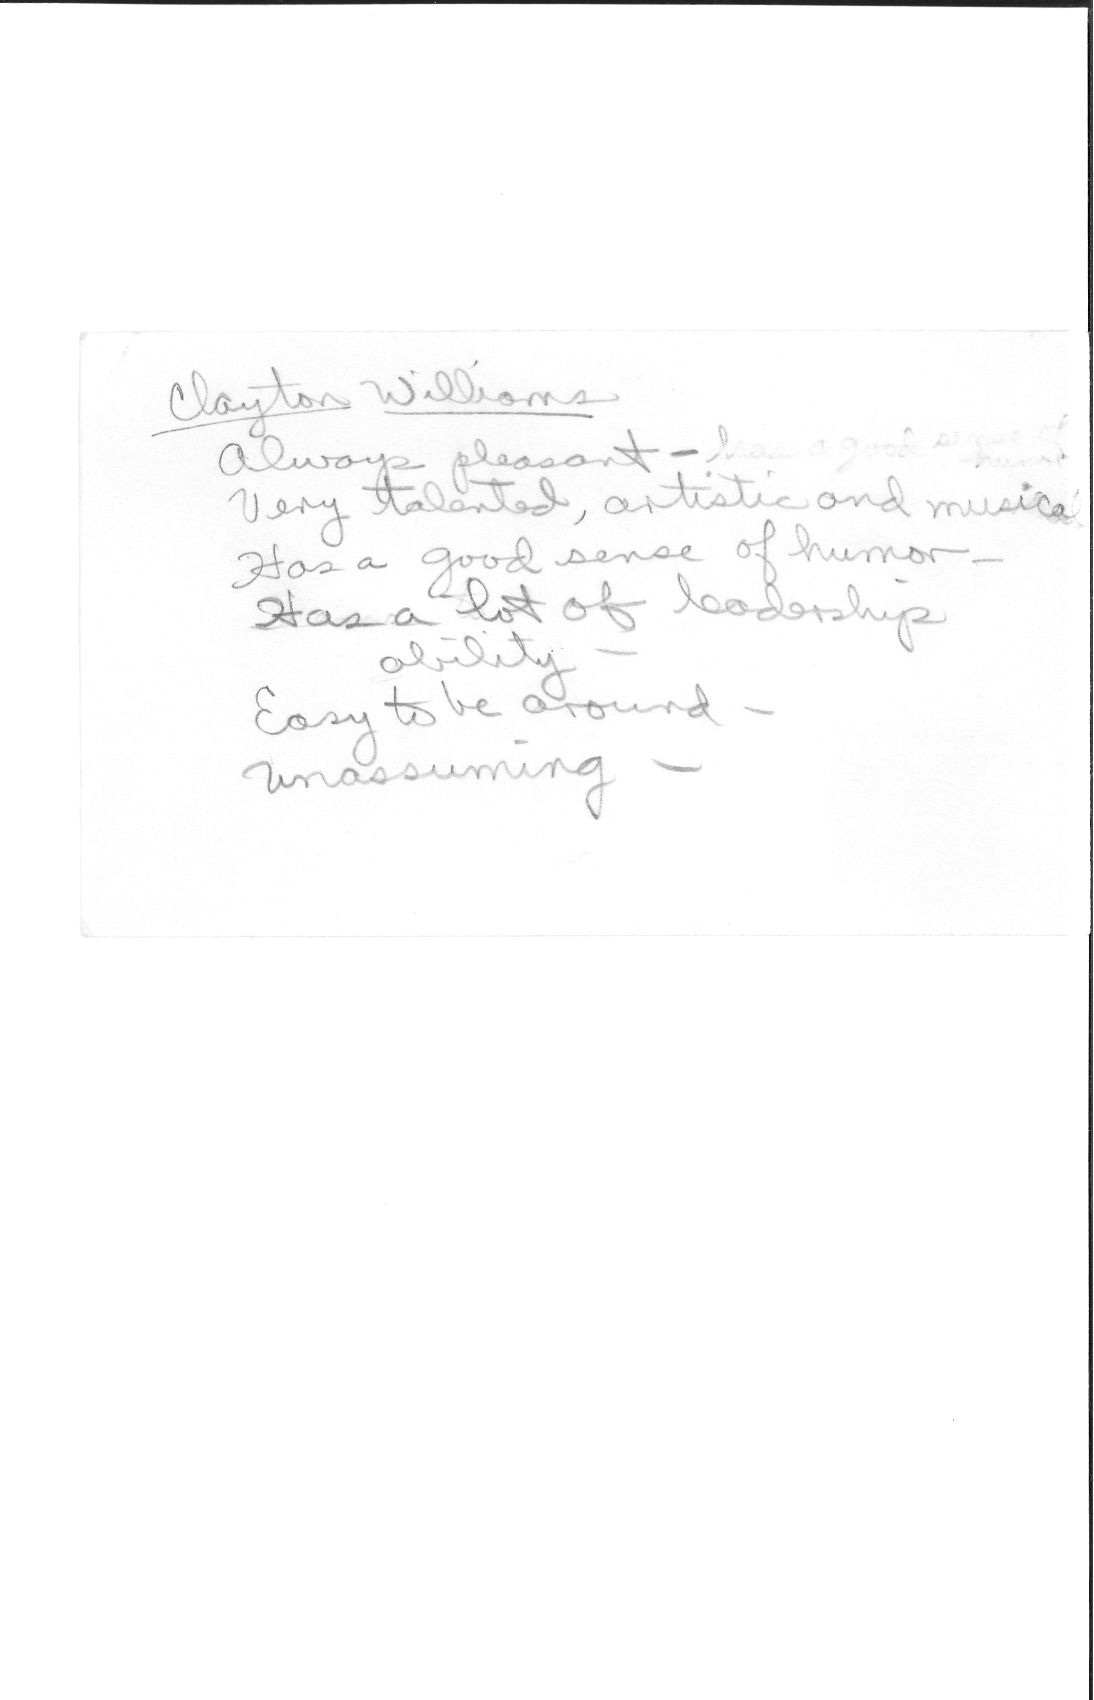 Clayton Williams
Always pleasant - has a good sense of
humor
Very talented, artistic and musical
Has a good sense of humor -
Has a lot of leadership
ability -
Easy to be around -
Unassuming -